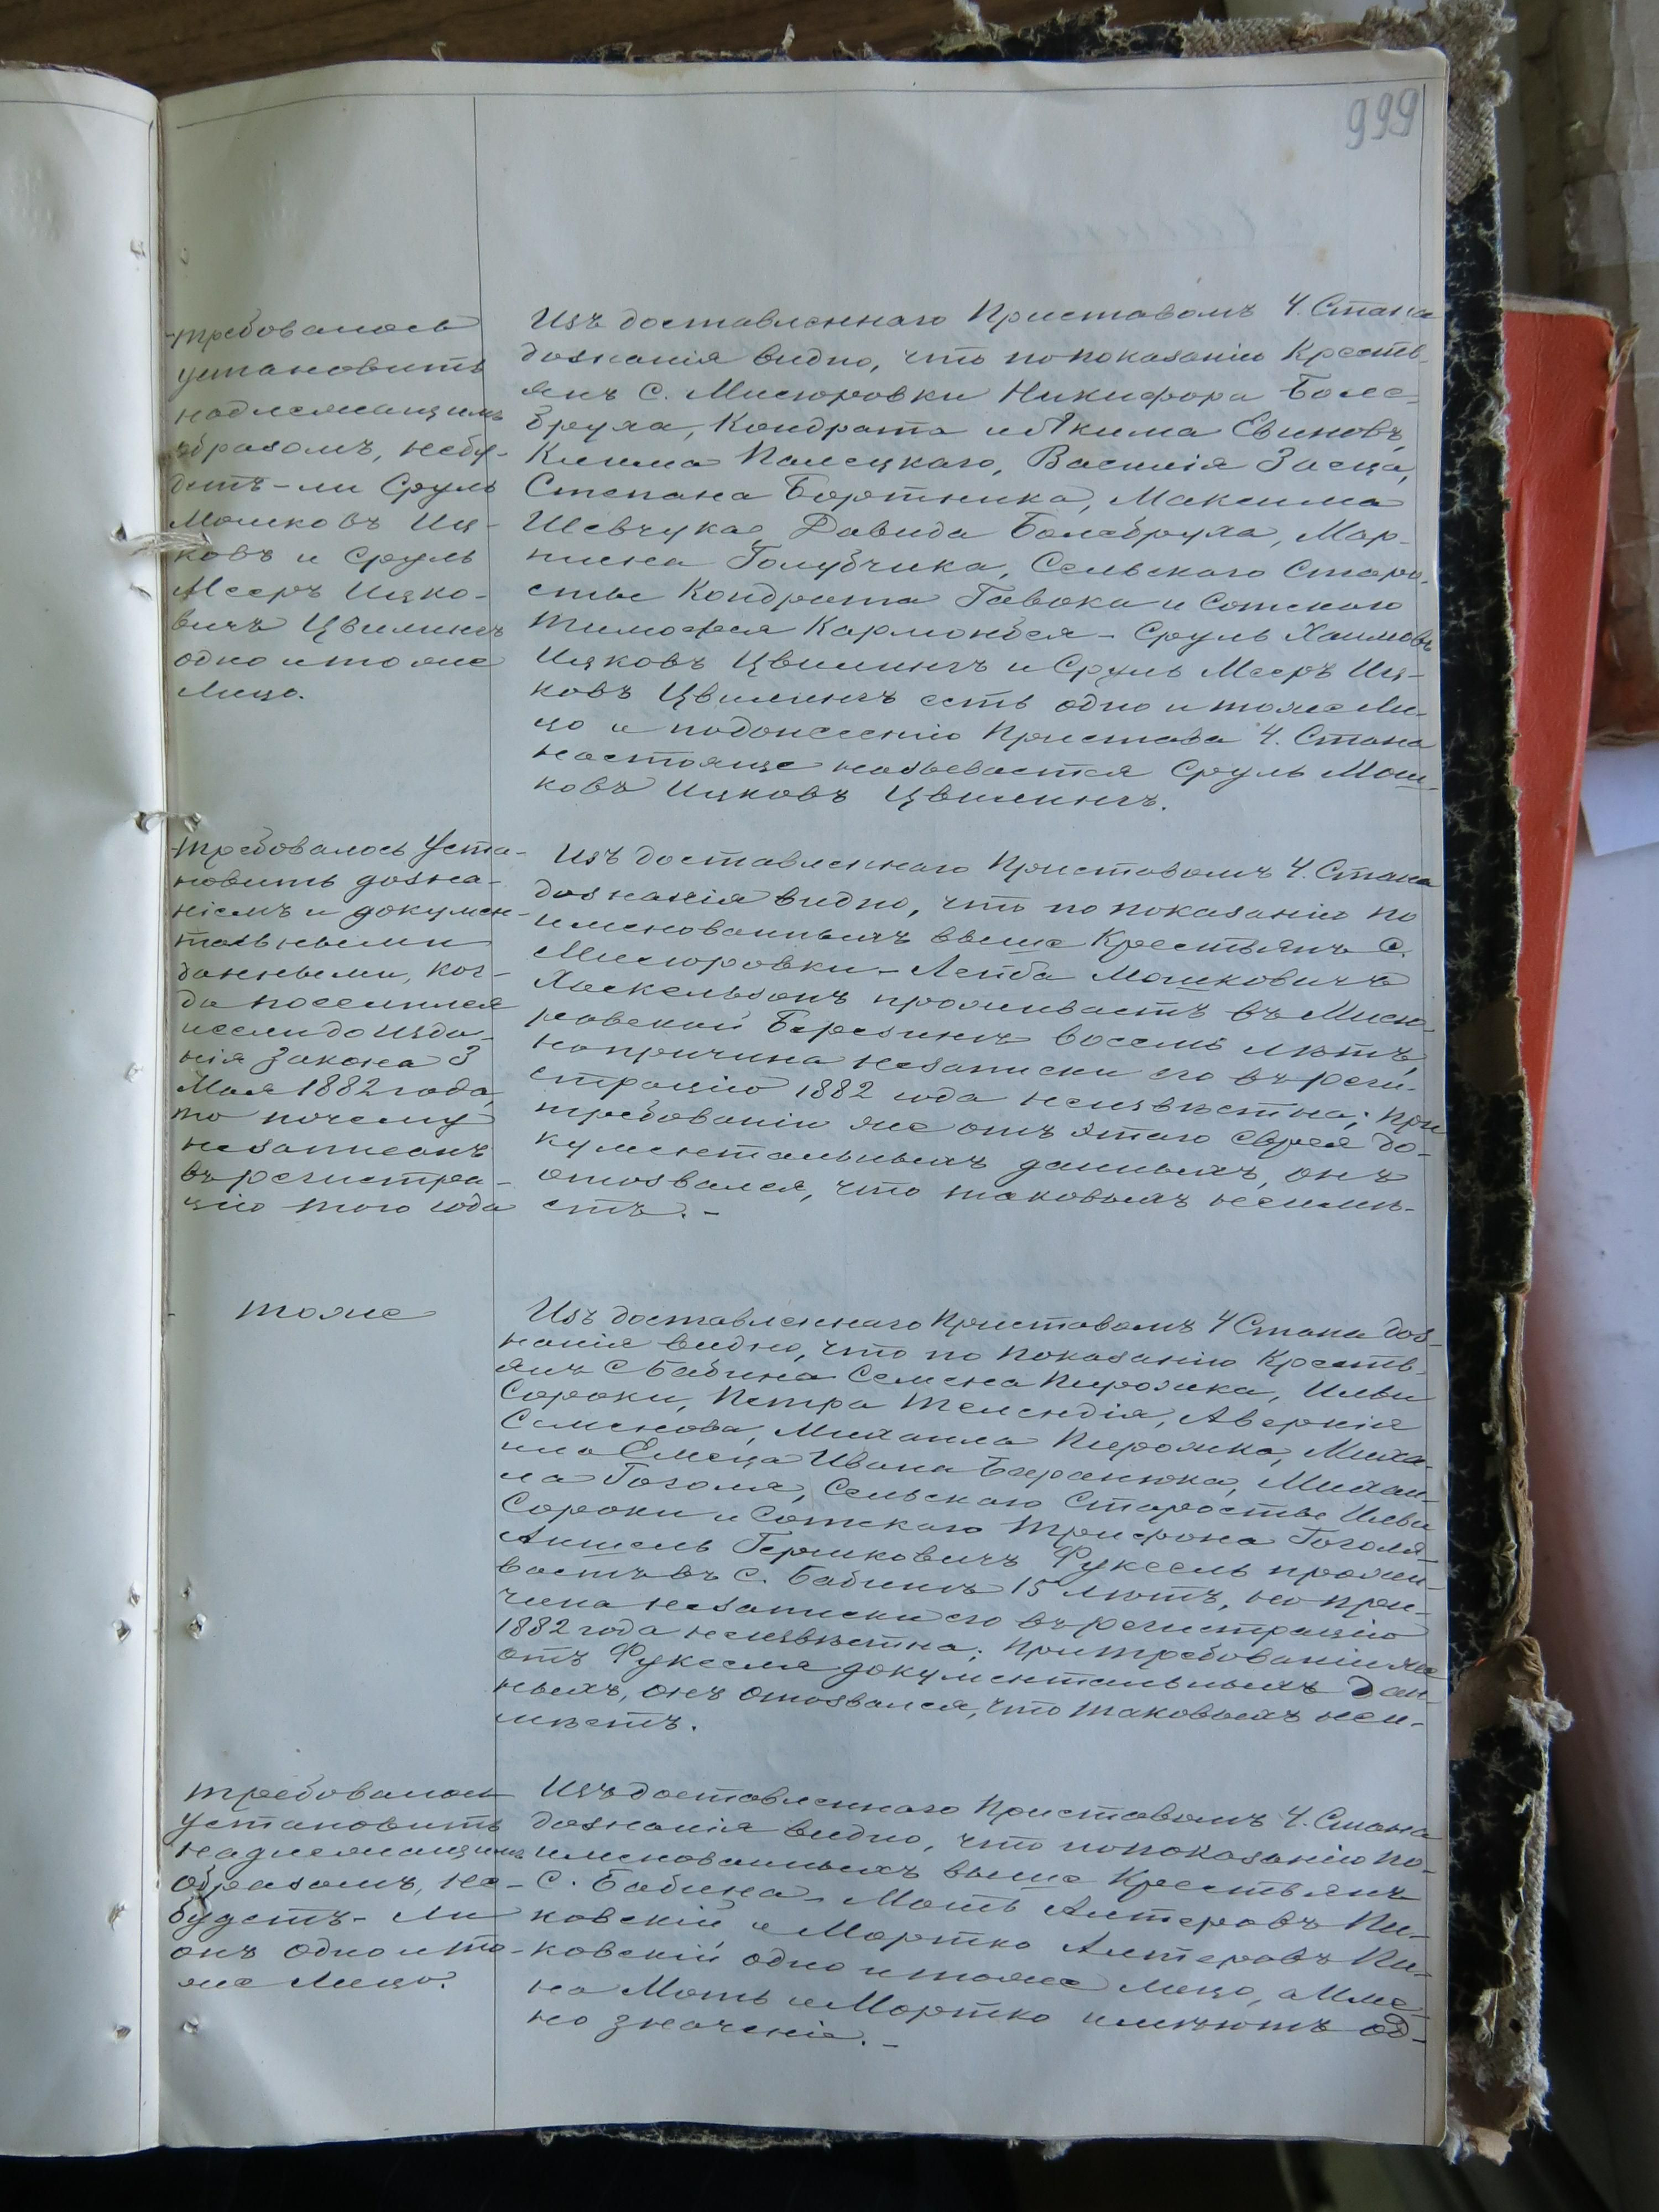 999
требовалось
установить
надлежащимъ
образомъ, небу-
детъ-ли Сруль
Мошковъ Иц-
ковъ и Сруль
Мееръ Ицко-
вичъ Цвилингъ
одно и тоже
лицо.
Изъ доставленнаго Приставомъ 4. Стана
дознанія видно, что по показанію Кресть-
янъ С. Мисюровки Никифора Боле-
бруха, Кондрата и Якима Евиновъ,
Клима Палецкаго, Василія Заеца,
Степана Бортника, Максима
Шевчука, Давида Болебруха, Мар-
тина Голубчика, Сельскаго Старо-
сты Кондрата Гавока и Сотскаго
Тимофея - Сруль Хаимовъ
Ицковъ Цвилингъ и Сруль Мееръ Иц-
ковъ Цвилингъ есть одно и тоже ли-
цо и подонесенію Пристава 4. Стана
настояще называется Сруль Мош-
ковъ Ицковъ Цвилингъ.
требовалось Уста-
новить дозна-
ніемъ и докумен-
тальными
данными, ког-
да поселился
иесли до изда-
нія закона 3
Мая 1882 года,
то почему
незаписанъ
въ регистра-
цію того года
Изъ доставленнаго Приставомъ 4. Стана
дознанія видно, что по показанію по
именованныхъ выше Крестьянъ С.
Мисюровки - Лейба Мошковичъ
Хаскельзонъ проживаетъ въ Мисю-
ровской Березинѣ восемь лѣтъ,
но причина незаписки его въ реги-
страцію 1882 года неизвѣстна; при
требованіи же отъ этаго еврея до-
кументальныхъ данныхъ, онъ
отозвался, что таковыхъ неимѣ-
етъ. -
- тоже
Изъ доставленнаго Приставомъ 4 Стана доз-
нанія видно, что по показанію Кресть-
янъ С Бабина Семена Пирожка, Ильи
Сороки, Петра Телендія, Аверкія
Семенова, Михаила Пирожка, Миха-
ила Емеца Ивана Баранюка, Михаи-
ла Гоголя, Сельскаго Старосты Ильи
Сороки и Сотскаго Трифона Гоголя-
Аншель Гершковичъ Фуксель прожи-
ваетъ въ С. Бабинѣ 15 лѣтъ, но при-
чина незаписки его въ регистрацію
1882 года неизвѣстна; притребованіи же
отъ Фукселя документальныхъ дан-
ныхъ, онъ отозвался, что таковыхъ неи-
мѣетъ.
требовалось
Установить
надлежащимъ
образомъ, не-
будетъ-ли
онъ одно и то-
же лицо.
Изъ доставленнаго Приставомъ 4. Стана
дознанія видно, что попоказанію по-
именованныхъ выше Крестьянъ
С. Бабина - Моть Алтеровъ Пи-
ковскій и Мортко Алтеровъ Пи-
ковскій одно и тоже лицо, а Име-
на Моть и Мортко имѣютъ од-
но значеніе. -